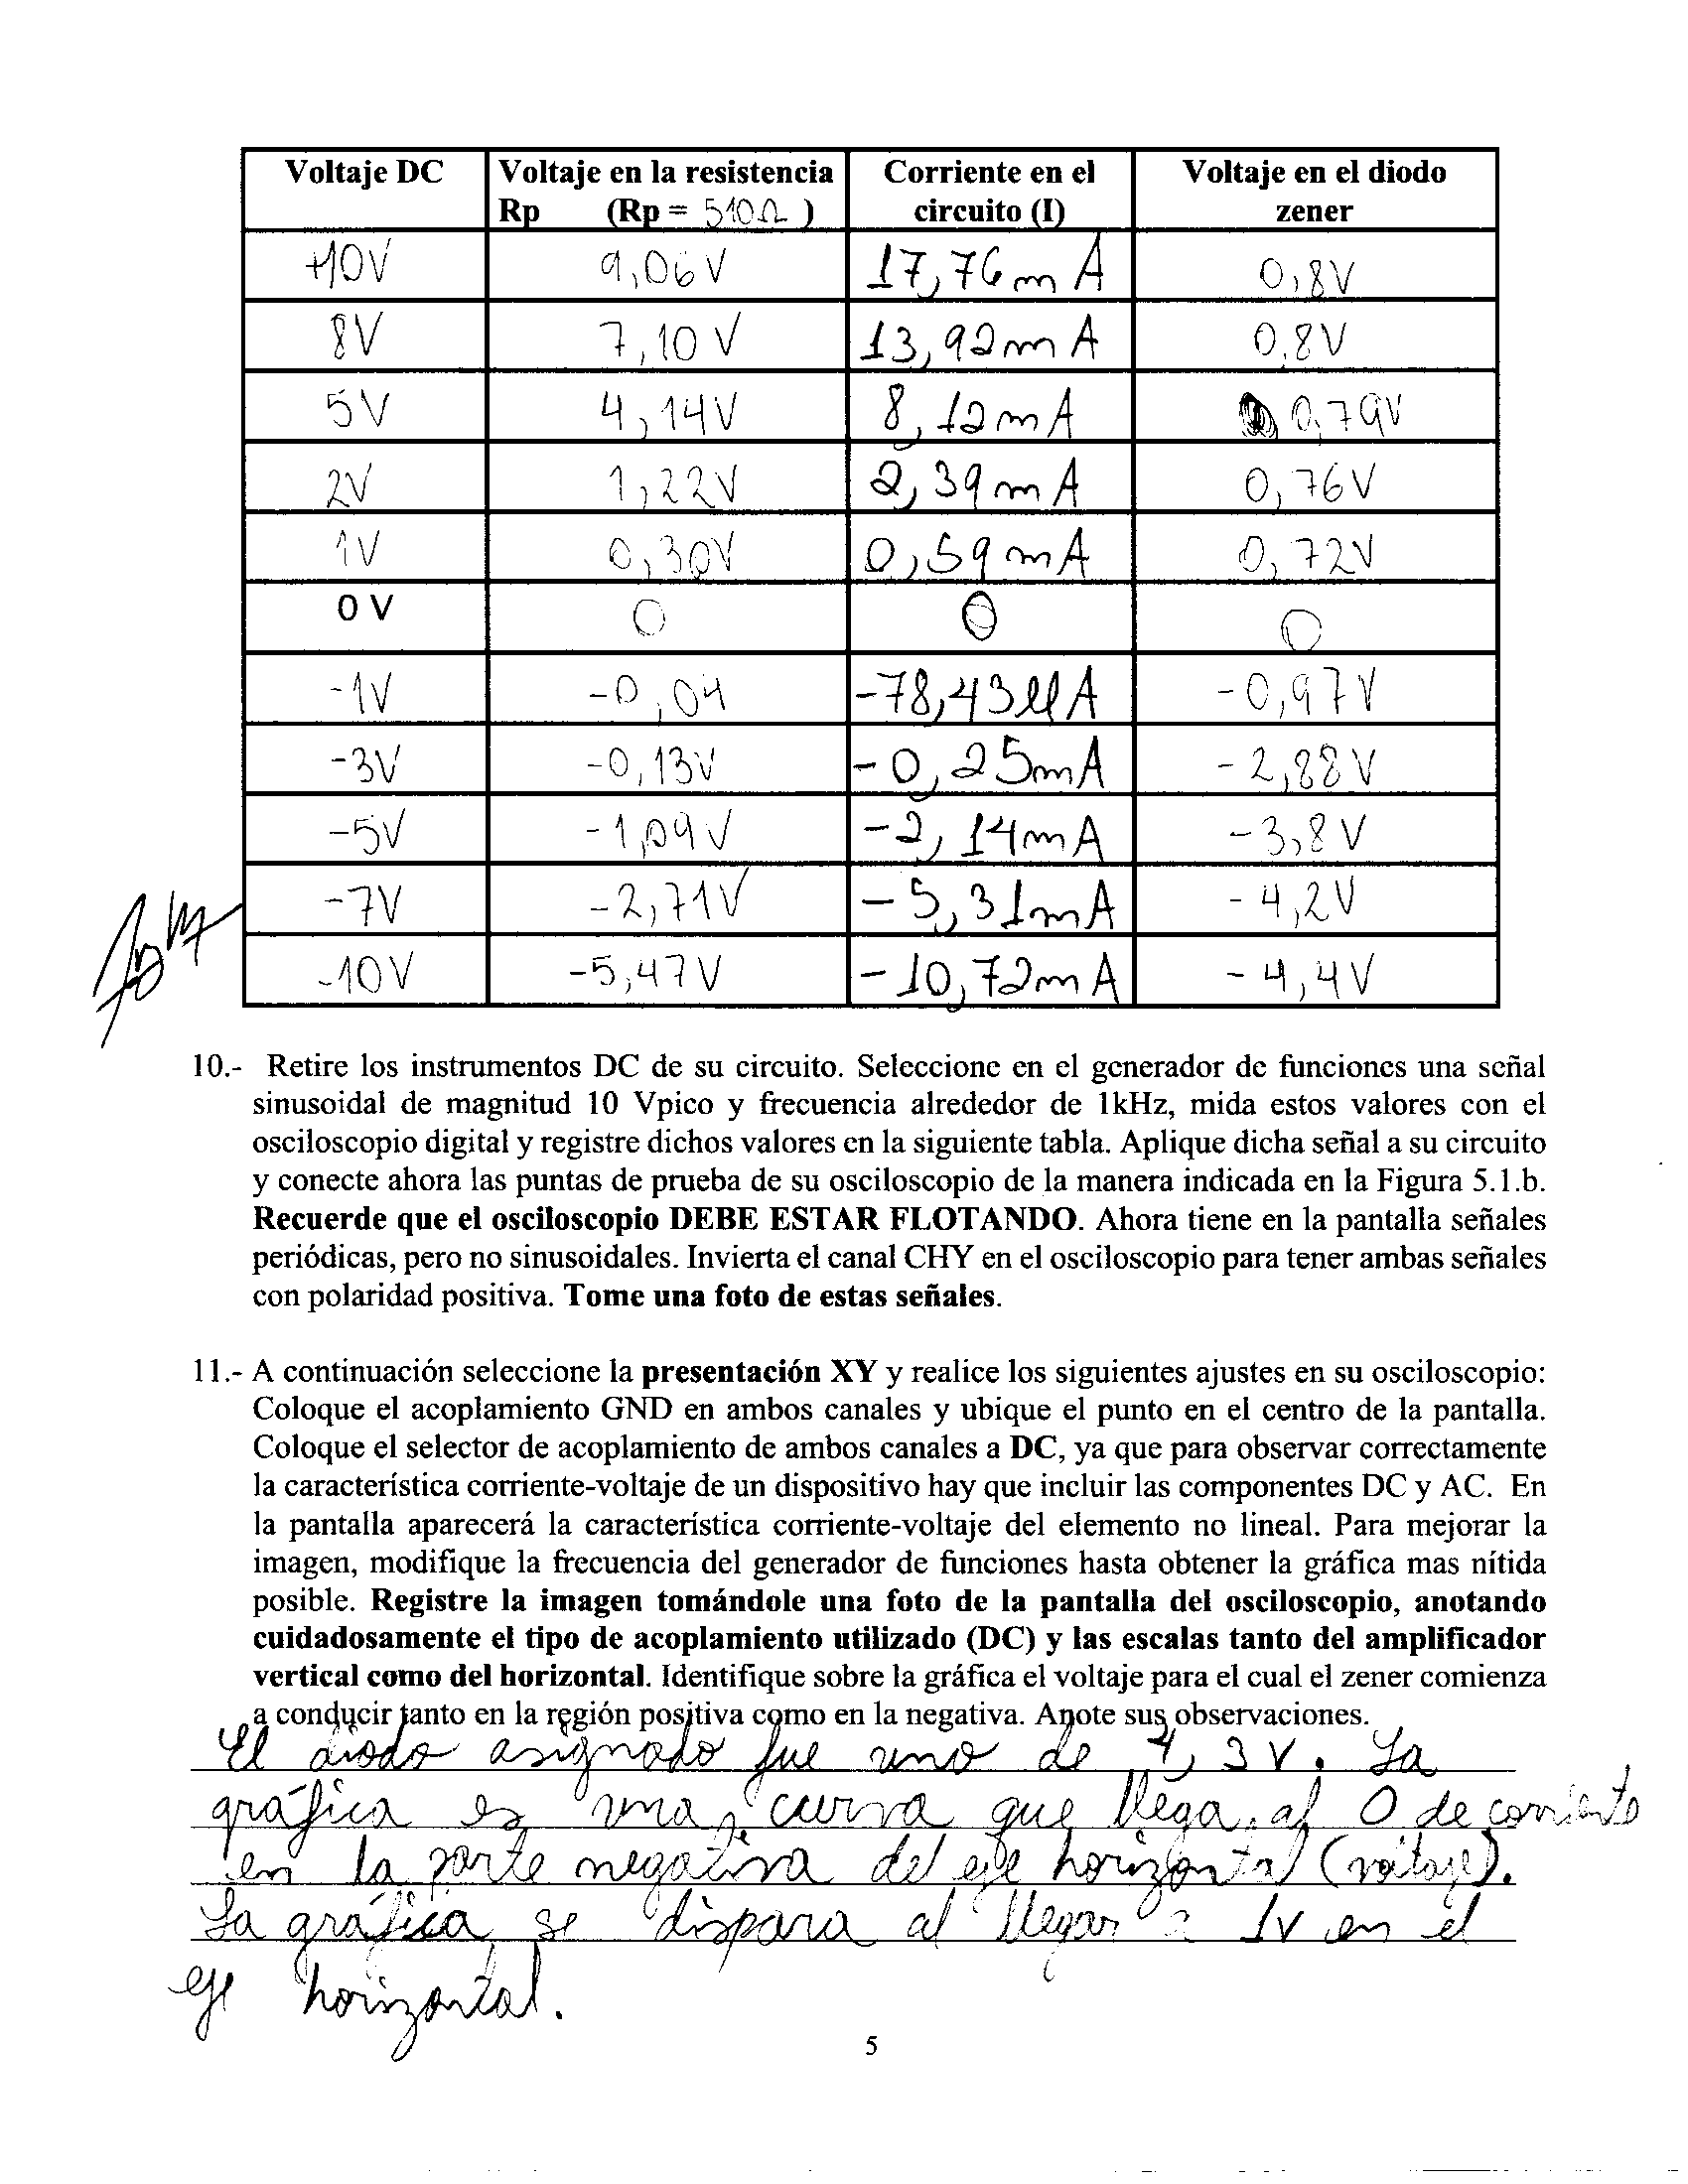 Voltaje DC | Voltaje en la resistencia Rp (Rp = 510Ω ) | Corriente en el circuito (I) | Voltaje en el diodo zener
+10V | 9,06V | 17,76mA | 0,8V
8V | 7,10V | 13,92mA | 0,8V
5V | 4,14V | 8,12mA | 0,79V
2V | 1,22V | 2,39mA | 0,76V
1V | 0,30V | 0,59mA | 0,72V
0 V | 0 | 0 | 0
-1V | -0,04 | -78,43µA | -0,97V
-3V | -0,13V | -0,25mA | -2,88V
-5V | -1,09V | -2,14mA | -3,8V
-7V | -2,71V | -5,31mA | -4,2V
-10V | -5,47V | -10,72mA | -4,4V
10.- Retire los instrumentos DC de su circuito. Seleccione en el generador de funciones una señal
sinusoidal de magnitud 10 Vpico y frecuencia alrededor de 1kHz, mida estos valores con el
osciloscopio digital y registre dichos valores en la siguiente tabla. Aplique dicha señal a su circuito
y conecte ahora las puntas de prueba de su osciloscopio de la manera indicada en la Figura 5.1.b.
Recuerde que el osciloscopio DEBE ESTAR FLOTANDO. Ahora tiene en la pantalla señales
periódicas, pero no sinusoidales. Invierta el canal CHY en el osciloscopio para tener ambas señales
con polaridad positiva. Tome una foto de estas señales.
11.- A continuación seleccione la presentación XY y realice los siguientes ajustes en su osciloscopio:
Coloque el acoplamiento GND en ambos canales y ubique el punto en el centro de la pantalla.
Coloque el selector de acoplamiento de ambos canales a DC, ya que para observar correctamente
la característica corriente-voltaje de un dispositivo hay que incluir las componentes DC y AC. En
la pantalla aparecerá la característica corriente-voltaje del elemento no lineal. Para mejorar la
imagen, modifique la frecuencia del generador de funciones hasta obtener la gráfica mas nítida
posible. Registre la imagen tomándole una foto de la pantalla del osciloscopio, anotando
cuidadosamente el tipo de acoplamiento utilizado (DC) y las escalas tanto del amplificador
vertical como del horizontal. Identifique sobre la gráfica el voltaje para el cual el zener comienza
a conducir tanto en la región positiva como en la negativa. Anote sus observaciones.
El diodo asignado fue uno de 4,3V. La
gráfica es una curva que llega al 0 de corriente
en la parte negativa del eje horizontal (voltaje).
La gráfica se dispara al llegar a 1V en el
eje horizontal.
5